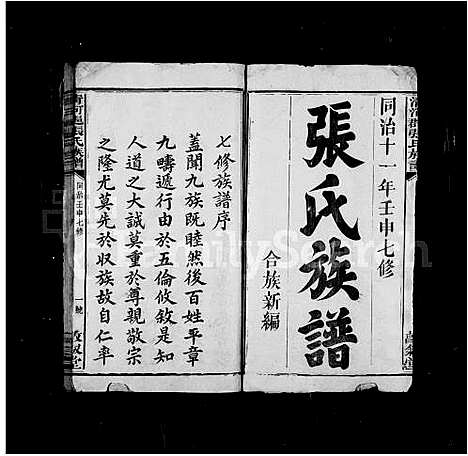 同治十一年壬申七修
張氏族譜
合族新編
七修族譜序
蓋聞九族既睦然後百姓平章
九疇遞行由於五倫攸敘是知
人道之大誠莫重於尊親敬宗
之隆尤莫先於收族故自仁率
張氏族譜
同治壬申七修
一號
敦敘堂
FamilySearch